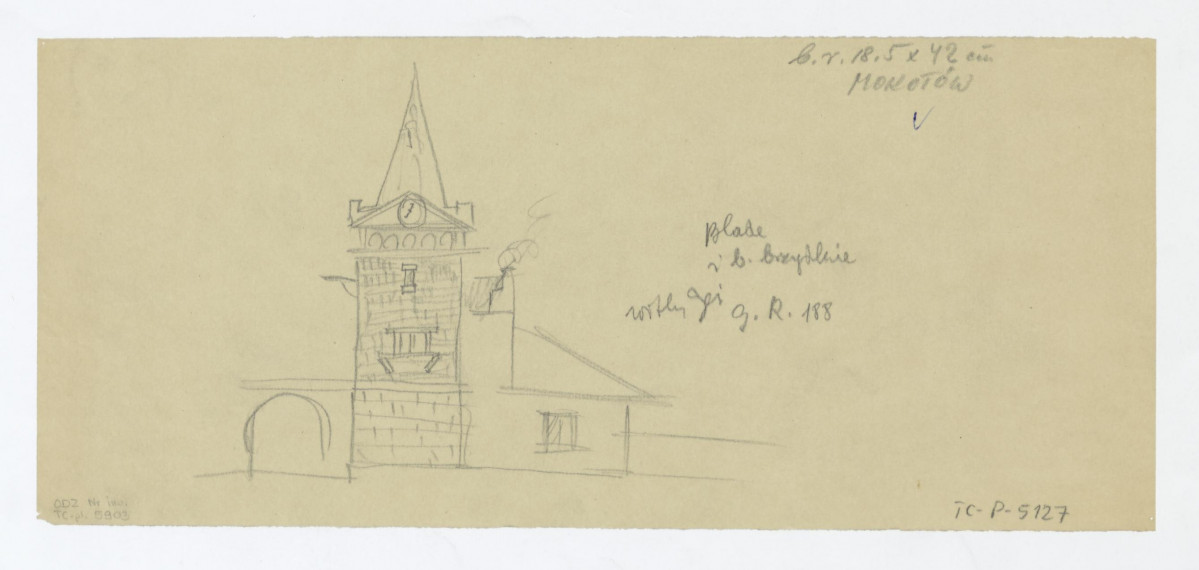 b. r. 18.5 x 42 cm
MOKOTÓW
blade
i b. brzydkie
g. R. 188
TC-P-5127
ODZ Nr inw.
TC-pl. 5803